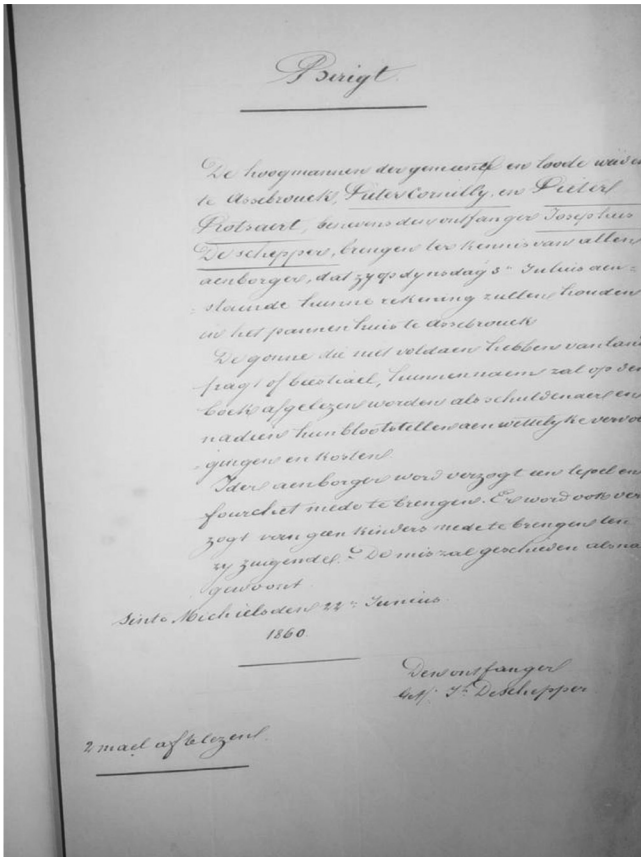 Berigt.
De hoogmannen der gemeene en loode weiden
te Assebrouck, Pieter Cornilly, en Pieter
Protsaert, benevens den ontfanger Josephus
De schepper, brengen ter kennis van allen
aenborger, dat zy op dynsdag 3n Julius aen-
-staende hunne rekening zullen houden
in het pannen huis te Assebrouck
De gonne die niet voldaen hebben van land
pagt of bestiael, hunnen naem zal op den
boek afgelezen worden als schuldenaers en
nadien hun blootstellen aen wettelyke vervol
-gingen en kosten
Ider aenborger word verzogt een lepel en
fourchet mede te brengen. Er word ook ver
zogt van geen kinders mede te brengen ten
zy zuigende. De mis zal geschieden als na
gewoont
Sinte Michiels den 22n Junius
1860.
Den ontfanger
Jh DeSchepper
2 mael aflezen.